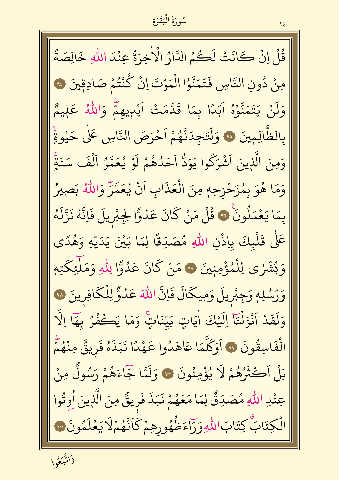 سُورَةُ الْبَقَرَةِ
قُلْ اِنْ كَانَتْ لَكُمُ الدَّارُ الْاٰخِرَةُ عِنْدَ اللّٰهِ خَالِصَةً
مِنْ دُونِ النَّاسِ فَتَمَنَّوُا الْمَوْتَ اِنْ كُنْتُمْ صَادِقٖينَ
وَلَنْ يَتَمَنَّوْهُ اَبَدًا بِمَا قَدَّمَتْ اَيْدٖيهِمْؕ وَاللّٰهُ عَلٖيمٌ
بِالظَّالِمٖينَ وَلَتَجِدَنَّهُمْ اَحْرَصَ النَّاسِ عَلٰى حَيٰوةٍۚ
وَمِنَ الَّذٖينَ اَشْرَكُوا يَوَدُّ اَحَدُهُمْ لَوْ يُعَمَّرُ اَلْفَ سَنَةٍۚ
وَمَا هُوَ بِمُزَحْزِحِهٖ مِنَ الْعَذَابِ اَنْ يُعَمَّرَؕ وَاللّٰهُ بَصٖيرٌ
بِمَا يَعْمَلُونَ قُلْ مَنْ كَانَ عَدُوًّا لِجِبْرٖيلَ فَاِنَّهُ نَزَّلَهُ
عَلٰى قَلْبِكَ بِاِذْنِ اللّٰهِ مُصَدِّقًا لِمَا بَيْنَ يَدَيْهِ وَهُدًى
وَبُشْرٰى لِلْمُؤْمِنٖينَ مَنْ كَانَ عَدُوًّا لِلّٰهِ وَمَلٰٓئِكَتِهٖ
وَرُسُلِهٖ وَجِبْرٖيلَ وَمٖيكَالَ فَاِنَّ اللّٰهَ عَدُوٌّ لِلْكَافِرٖينَ
وَلَقَدْ اَنْزَلْنَٓا اِلَيْكَ اٰيَاتٍ بَيِّنَاتٍۚ وَمَا يَكْفُرُ بِهَٓا اِلَّا
الْفَاسِقُونَ اَوَكُلَّمَا عَاهَدُوا عَهْدًا نَبَذَهُ فَرٖيقٌ مِنْهُمْؕ
بَلْ اَكْثَرُهُمْ لَا يُؤْمِنُونَ وَلَمَّا جَٓاءَهُمْ رَسُولٌ مِنْ
عِنْدِ اللّٰهِ مُصَدِّقٌ لِمَا مَعَهُمْ نَبَذَ فَرٖيقٌ مِنَ الَّذٖينَ اُو۫تُوا
الْكِتَابَۗ كِتَابَ اللّٰهِ وَرَٓاءَ ظُهُورِهِمْ كَاَنَّهُمْ لَا يَعْلَمُونَ
وَاتَّبَعُوا